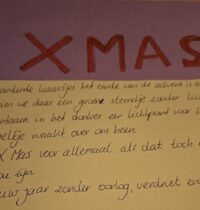 XMAS
het einde van de advent is a
zien we daar een groen sterretje zonder lic
in het donker een lichtpunt voor
waakt over ons heen
X Mas voor allemaal als dat toch
zou zijn
jaar zonder oorlog, verdriet en